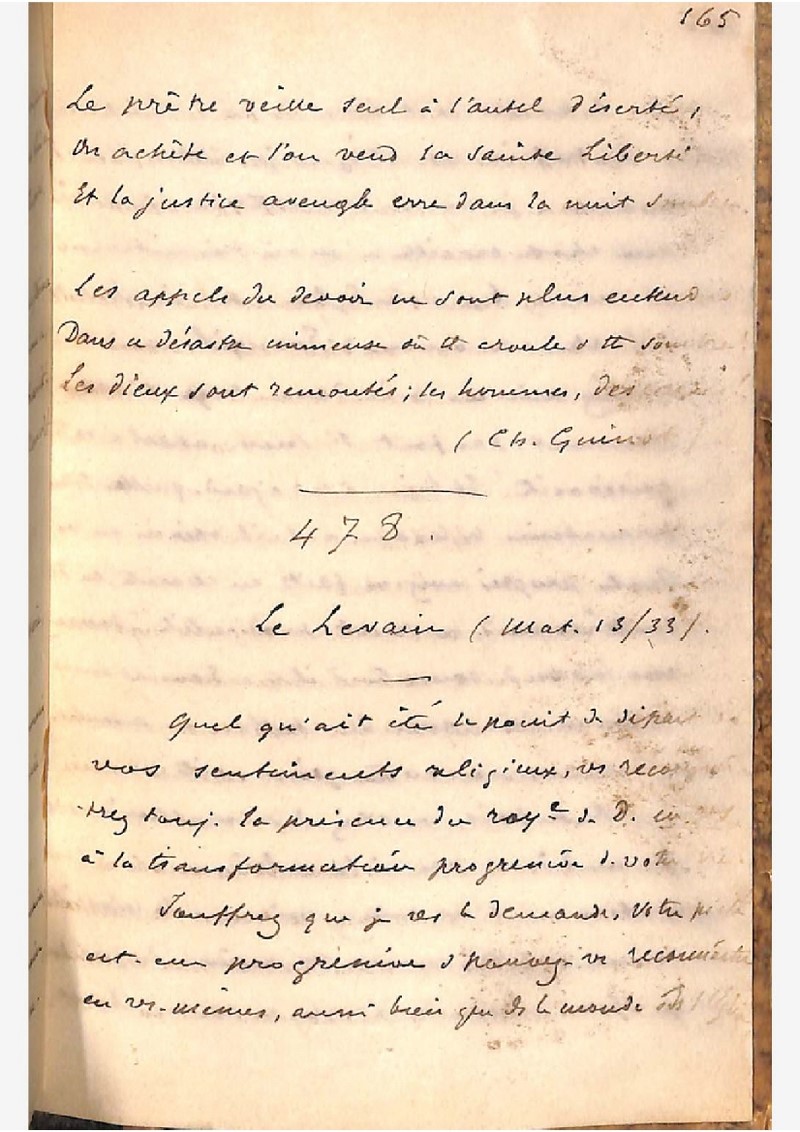 165
Le prêtre veille seul à l'autel déserté,
On achète et l'on vend la sainte Liberté
Et la justice aveugle erre dans la nuit
Les appels du devoir ne sont plus entend
Dans ce désastre immense où tt croule & tt
Les dieux sont remontés ; les hommes,
( Ch. Guin
478.
Le Levain ( Mat. 13/33 ).
Quel qu'ait été le point de
vos sentiments religieux, vs
-trez touj. la présence du roye de D. en
à la transformation progressive d. votre
Souffrez que je vs le demande, votre piété
est-elle progressive & pouvez-vs reconnaître
en vs-mêmes, aussi bien que ds le monde